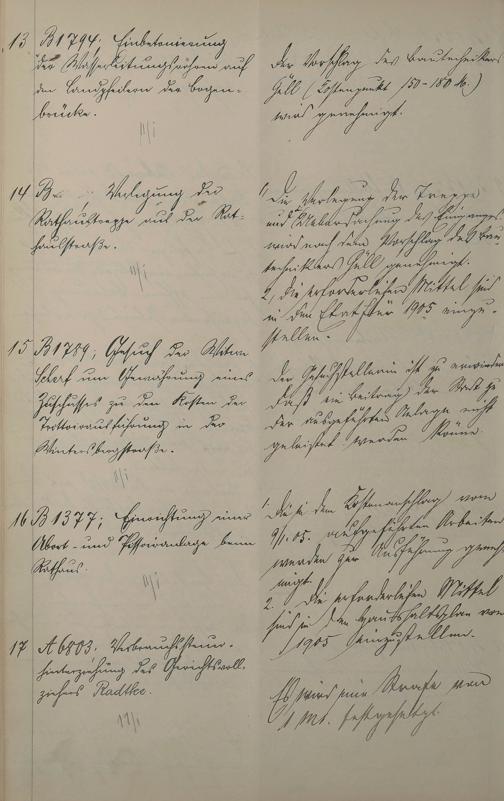 13 B 1794. Einbetonierung
der Wasserleitungsröhren auf
den Landpfeilern der Bogen-
brücke.
11/I
Der Vorschlag des Bautechnikers
Hüll (Kostenpunkt 150-180 M.)
wird genehmigt.
14 B Verlegung der
Rathaustreppe auf der Rat-
hausstraße.
11/I
1, Die Verlegung der Treppe
und des Eingangs
wird nach dem Vorschlag des Bau-
technikers Hüll genehmigt.
2, die erforderlichen Mittel sind
in den Etat für 1905 einzu-
stellen.
15 B 1789; Gesuch der Witwe
Scherf um Gewährung eines
Zuschusses zu den Kosten der
Trottoirausführung in der
Wintersbergstraße.
11/I
Der Gesuchstellerin ist zu erwidern
daß ein Beitrag der Stadt zu
der ausgeführten Anlage nicht
geleistet werden könne.
16 B 1377; Einrichtung einer
Abort- und Pissoiranlage beim
Rathaus.
11/I
1. Die in dem Kostenanschlag vom
9/1. 05. aufgeführten Arbeiten
werden zur Ausführung geneh-
migt.
2. Die erforderlichen Mittel
sind in den Haushaltsplan von
1905 einzustellen.
17 A 6803. Verbrauchssteuer-
hinterziehung des Gerichtsvoll-
ziehers Radtke.
11/I
Es wird eine Strafe von
1 Mk. festgesetzt.